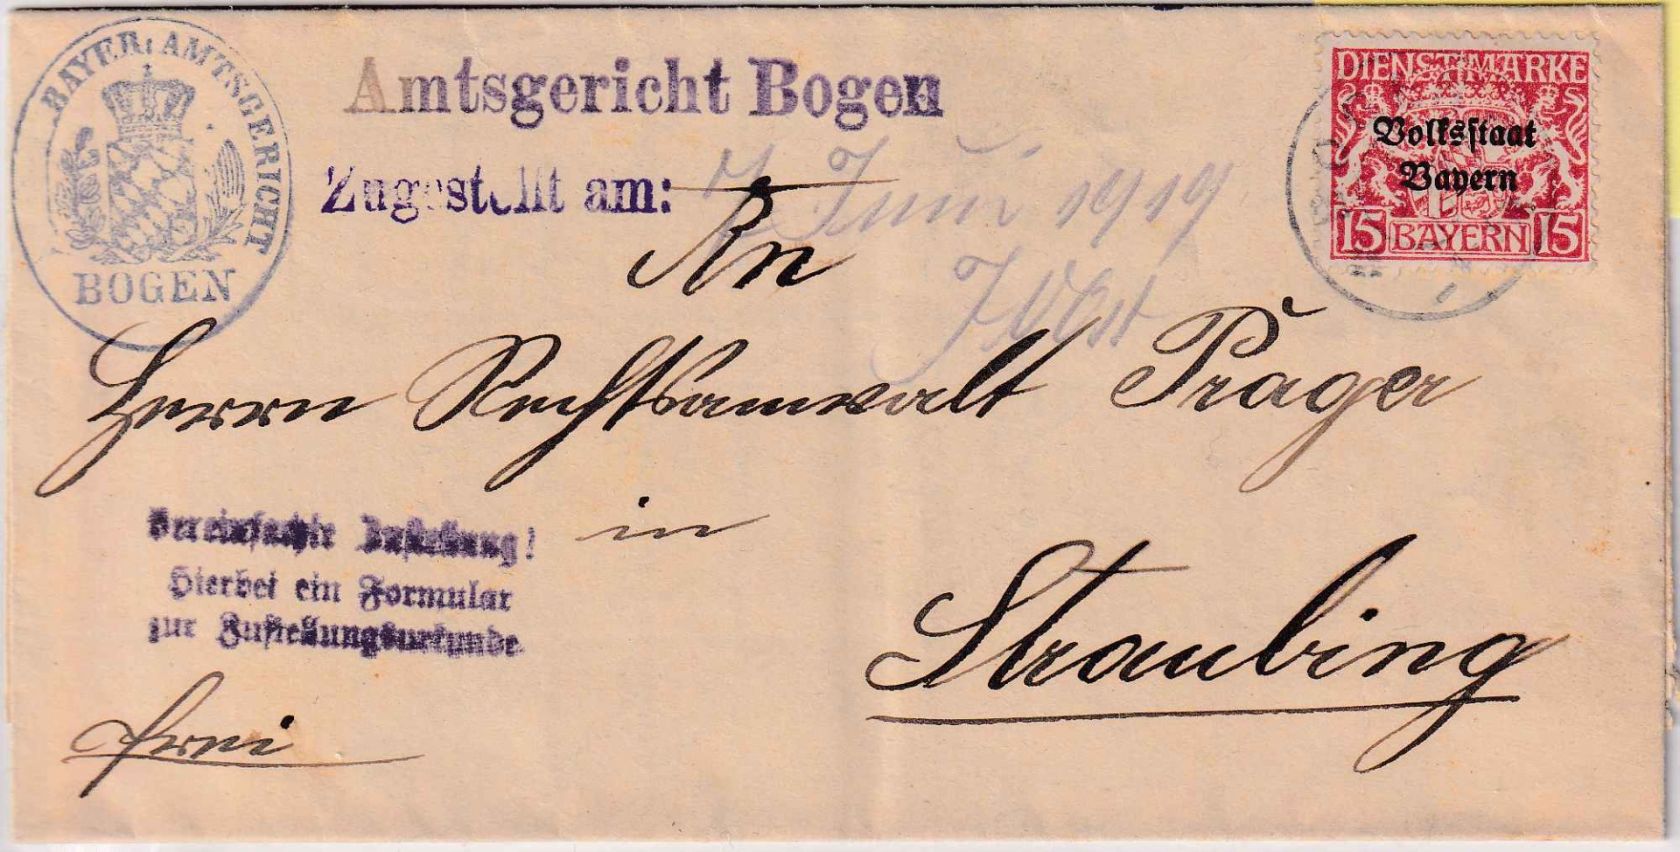 BAYER. AMTSGERICHT
BOGEN
Amtsgericht Bogen
Zugestellt am: 7 Juni 1919
DIENSTMARKE
Volksstaat
Bayern
15 BAYERN 15
An
Herrn Rechtsanwalt Prager
in
Straubing
Vereinfachte Zustellung!
Hierbei ein Formular
zur Zustellungsurkunde
frei